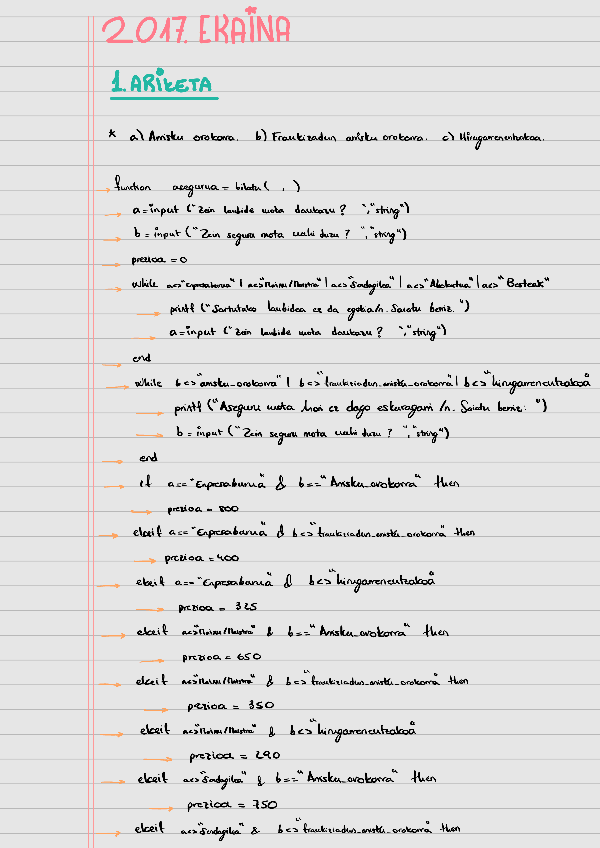 2017. EKAINA
1. ARIKETA
* a) Arrisku orokorra. b) Frankiziadun arrisku orokorra. c) Hirugarrenentzakoa.
function asegurua = bilatu ( , )
a = input ("Zein lanbide mota daukazu? ","string")
b = input ("Zein seguru mota nahi duzu? ","string")
prezioa = 0
while a<>"Enpresaburua" | a<>"Maisu/Maistra" | a<>"Sendagilea" | a<>"Abokatua" | a<>"Besteak"
printf ("Sartutako lanbidea ez da egokia/n. Saiatu berriz. ")
a = input ("Zein lanbide mota daukazu? ","string")
end
while b<>"arrisku_orokorra" | b<>"frankiziadun_arrisku_orokorra" | b<>"hirugarrenentzakoa"
printf ("Aseguru mota hori ez dago eskuragarri /n. Saiatu berriz: ")
b = input ("Zein seguru mota nahi duzu? ","string")
end
if a=="Enpresaburua" & b=="Arrisku_orokorra" then
prezioa = 800
elseif a=="Enpresaburua" & b<>"frankiziadun_arrisku_orokorra" then
prezioa = 400
elseif a=="Enpresaburua" & b<>"hirugarrenentzakoa"
prezioa = 325
elseif a<>"Maisu/Maistra" & b=="Arrisku_orokorra" then
prezioa = 650
elseif a<>"Maisu/Maistra" & b<>"frankiziadun_arrisku_orokorra" then
prezioa = 350
elseif a<>"Maisu/Maistra" & b<>"hirugarrenentzakoa"
prezioa = 290
elseif a<>"Sendagilea" & b=="Arrisku_orokorra" then
prezioa = 750
elseif a<>"Sendagilea" & b<>"frankiziadun_arrisku_orokorra" then